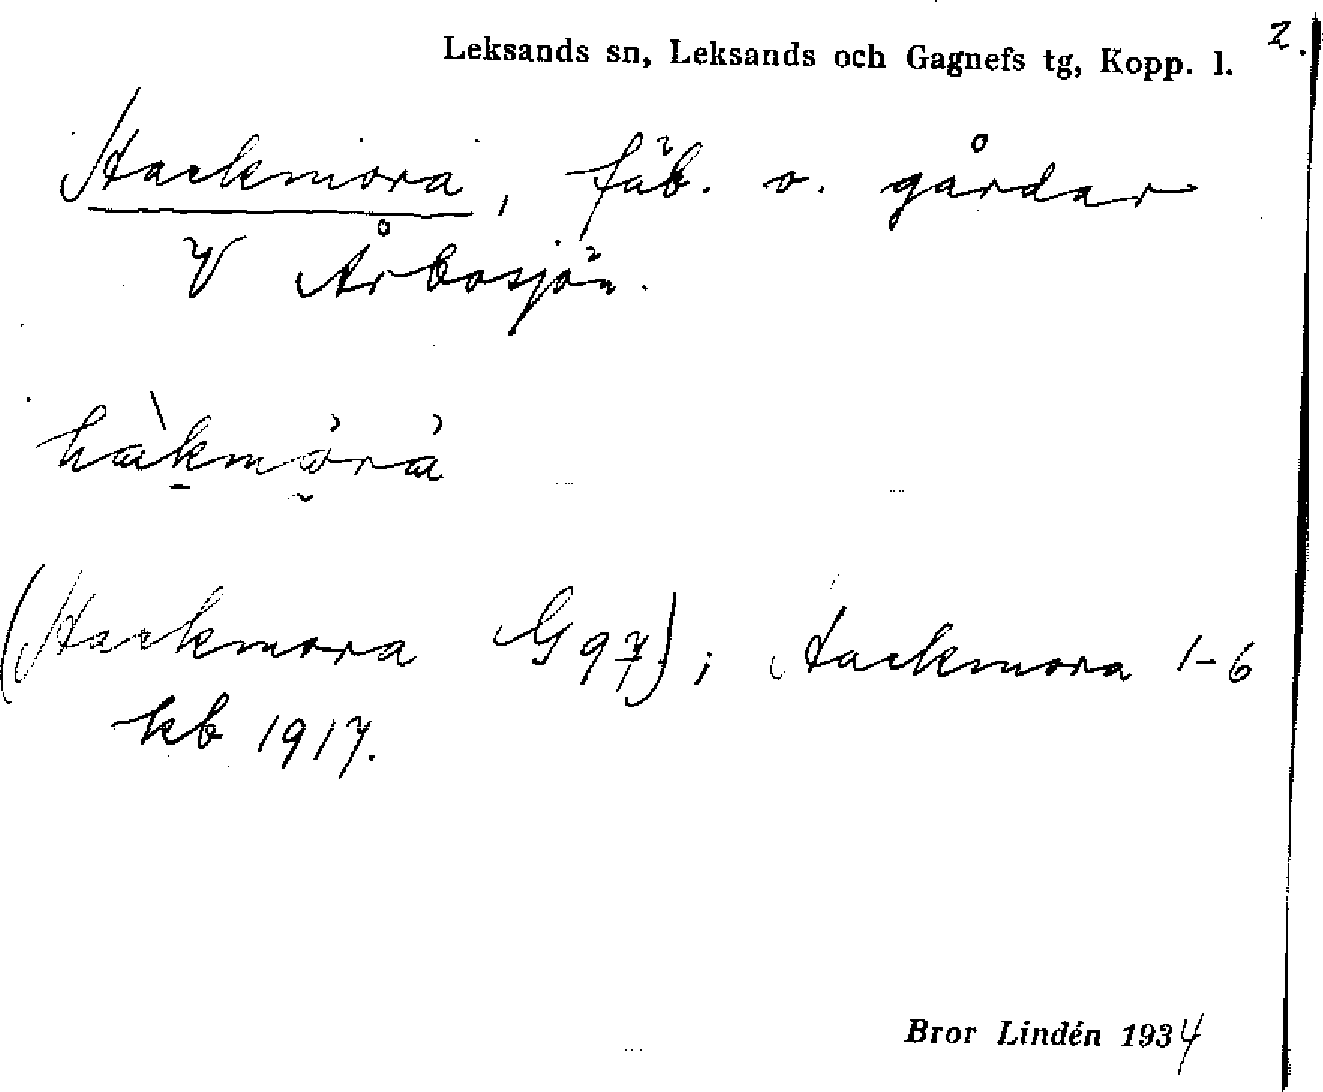 2.
Leksands sn, Leksands och Gagnefs tg, Kopp. l.
Hackmora, fäb. o. gårdar
V Årbosjön.
hàkmòrà
(Hackmora G97); Hackmora 1-6
kb 1917.
Bror Lindén 1934